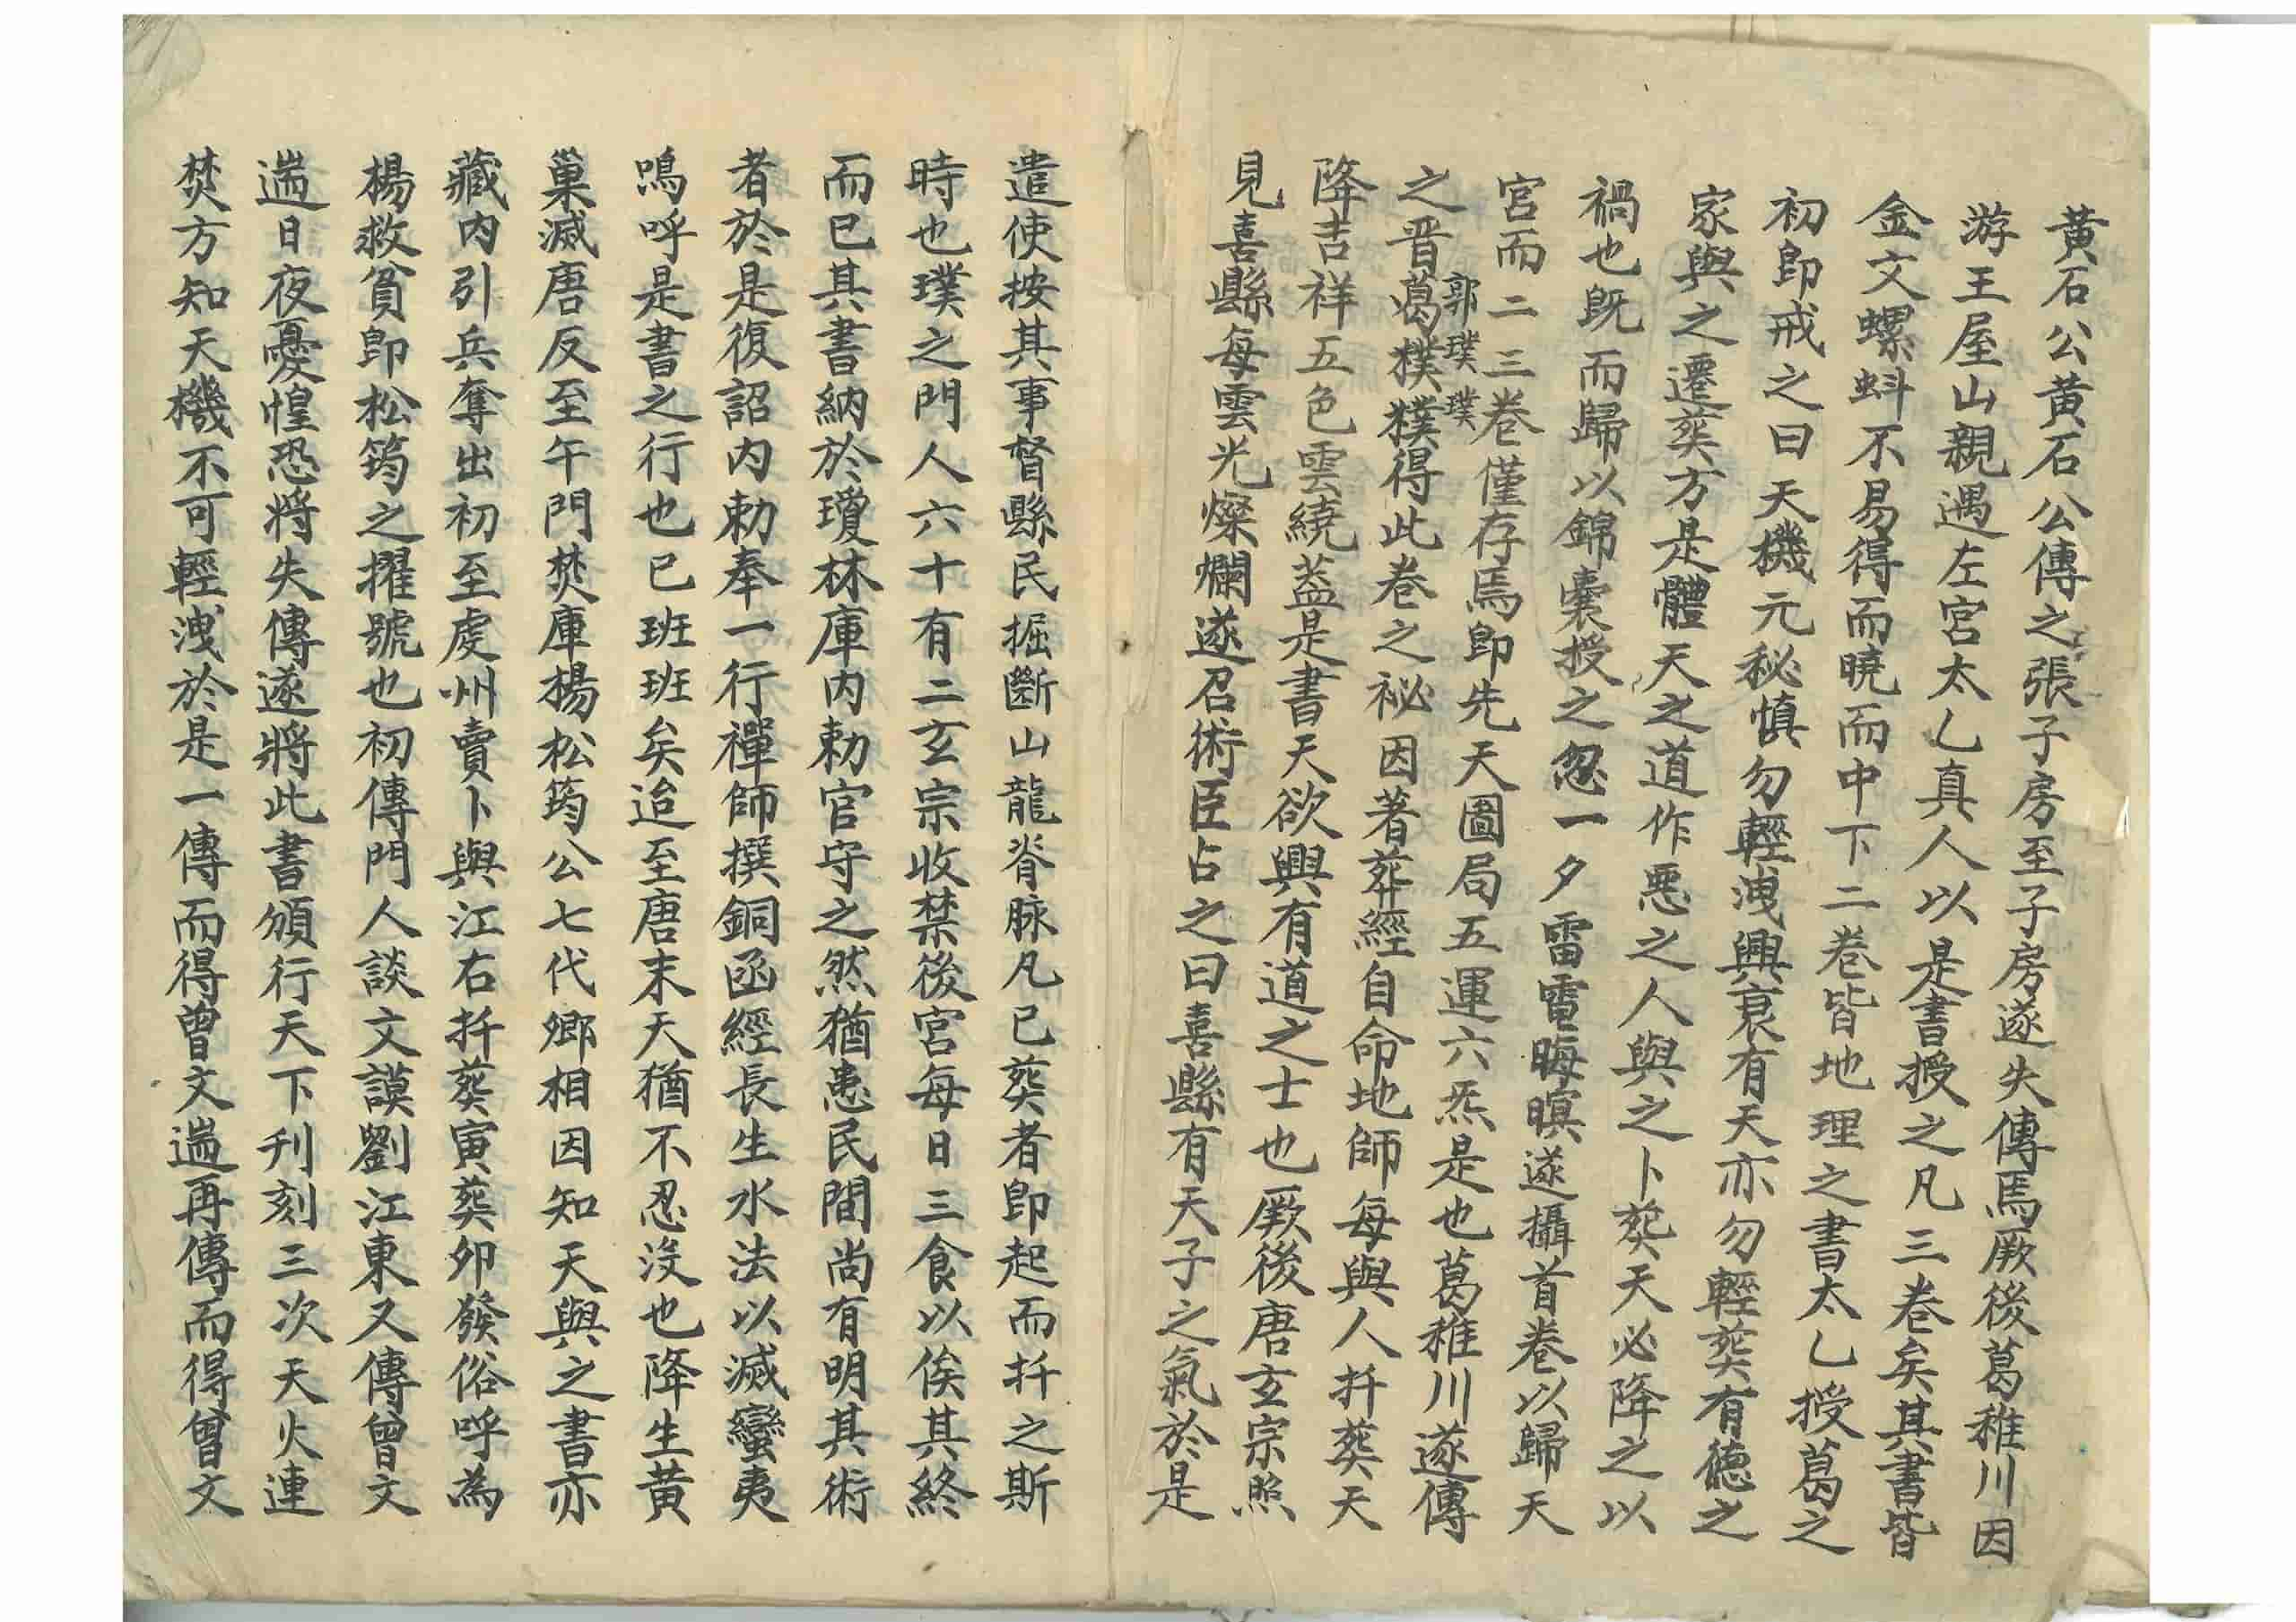 黃石公黃石公傳之張子房至子房遂失傳焉厥後葛稚川因
游王屋山親遇左宮太乙真人以是書授之凡三卷矣其書皆
金文螺蚪不易得而曉而中下二卷皆地理之書太乙授葛之
初即戒之曰天機元秘慎勿輕洩興衰有天亦勿輕葬有德之
家與之遷葬方是體天之道作惡之人與之卜葬天必降之以
禍也既而歸以錦囊授之忽一夕雷電晦暝遂攝首卷以歸天
宮而二三卷僅存焉即先天圖局五運六炁是也葛稚川遂傳
郭璞璞
之晋葛樸樸得此卷之祕因著葬經自命地師每與人扦葬天
降吉祥五色雲繞葢是書天欲興有道之士也厥後唐玄宗照
見喜縣每雲光燦爛遂召術臣占之曰喜縣有天子之氣於是
遣使按其事督縣民掘斷山龍脊脉凡已葬者即起而扦之斯
時也璞之門人六十有二玄宗收禁後宮每日三食以俟其終
而已其書納於瓊林庫内勅官守之然猶患民間尚有明其術
者於是復詔内勅奉一行禪師撰銅函經長生水法以滅蠻夷
嗚呼是書之行也已班班矣迨至唐末天猶不忍没也降生黃
巢滅唐反至午門焚庫楊松筠公七代鄉相因知天與之書亦
藏内引兵奪出初至虔州賣卜與江右扦葬寅葬卯發俗呼為
楊救貧即松筠之擢號也初傳門人談文謨劉江東又傳曾文
遄日夜憂惶恐將失傳遂將此書頒行天下刋刻三次天火連
焚方知天機不可輕洩於是一傳而得曾文遄再傳而得曾文